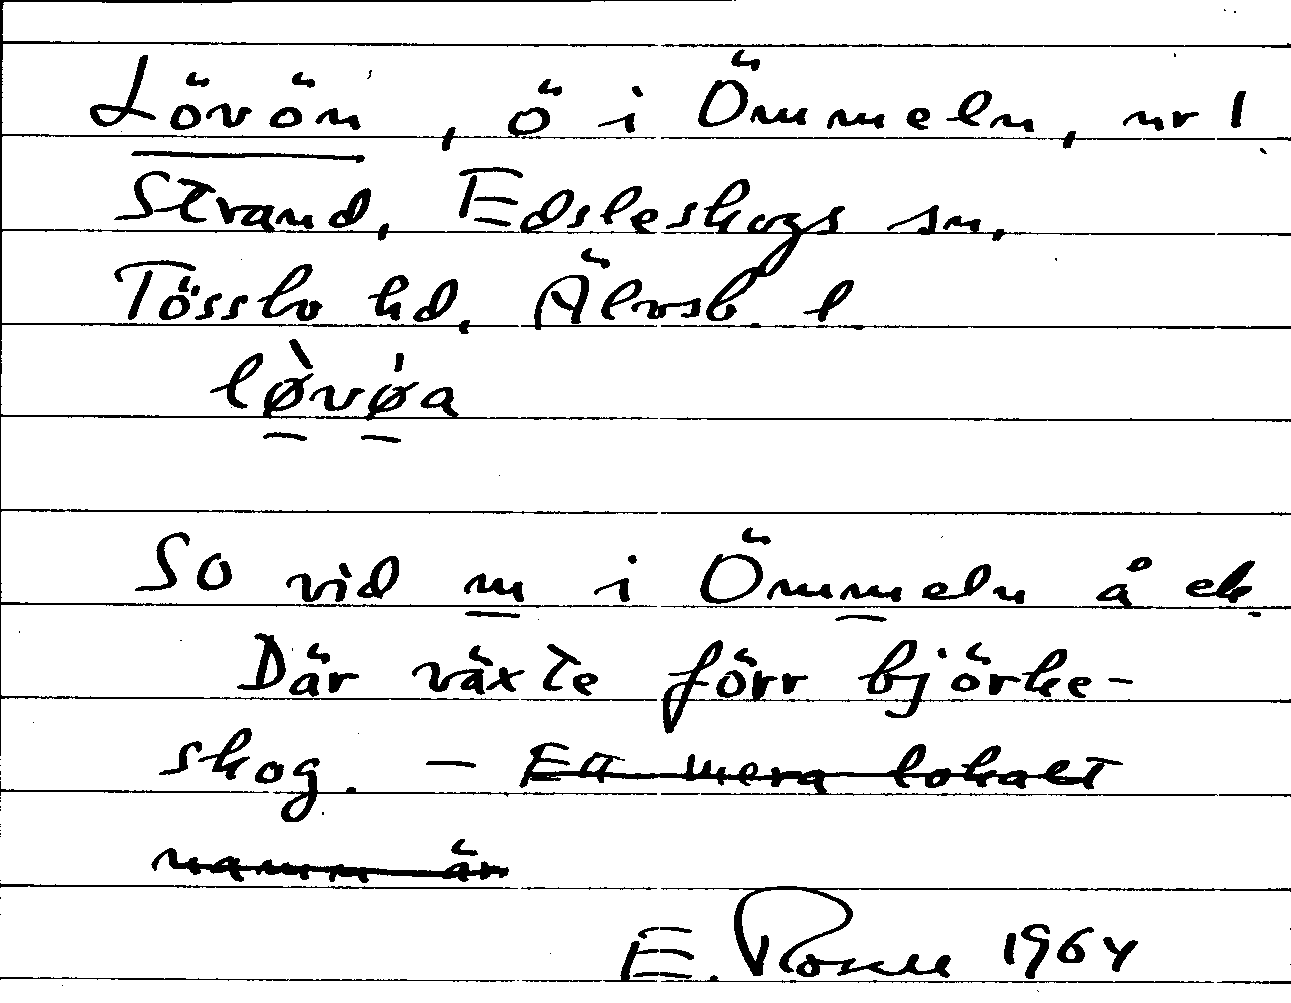 Lövön, ö i Ömmeln, nr 1
Strand, Edsleskogs sn,
Tössbo hd, Älvsb. l.
lø̀vø̍a
SO vid m i Ömmeln å ek.
Där växte förr björke-
skog. – Ett mera lokalt
namn är
E. Rosell 1964